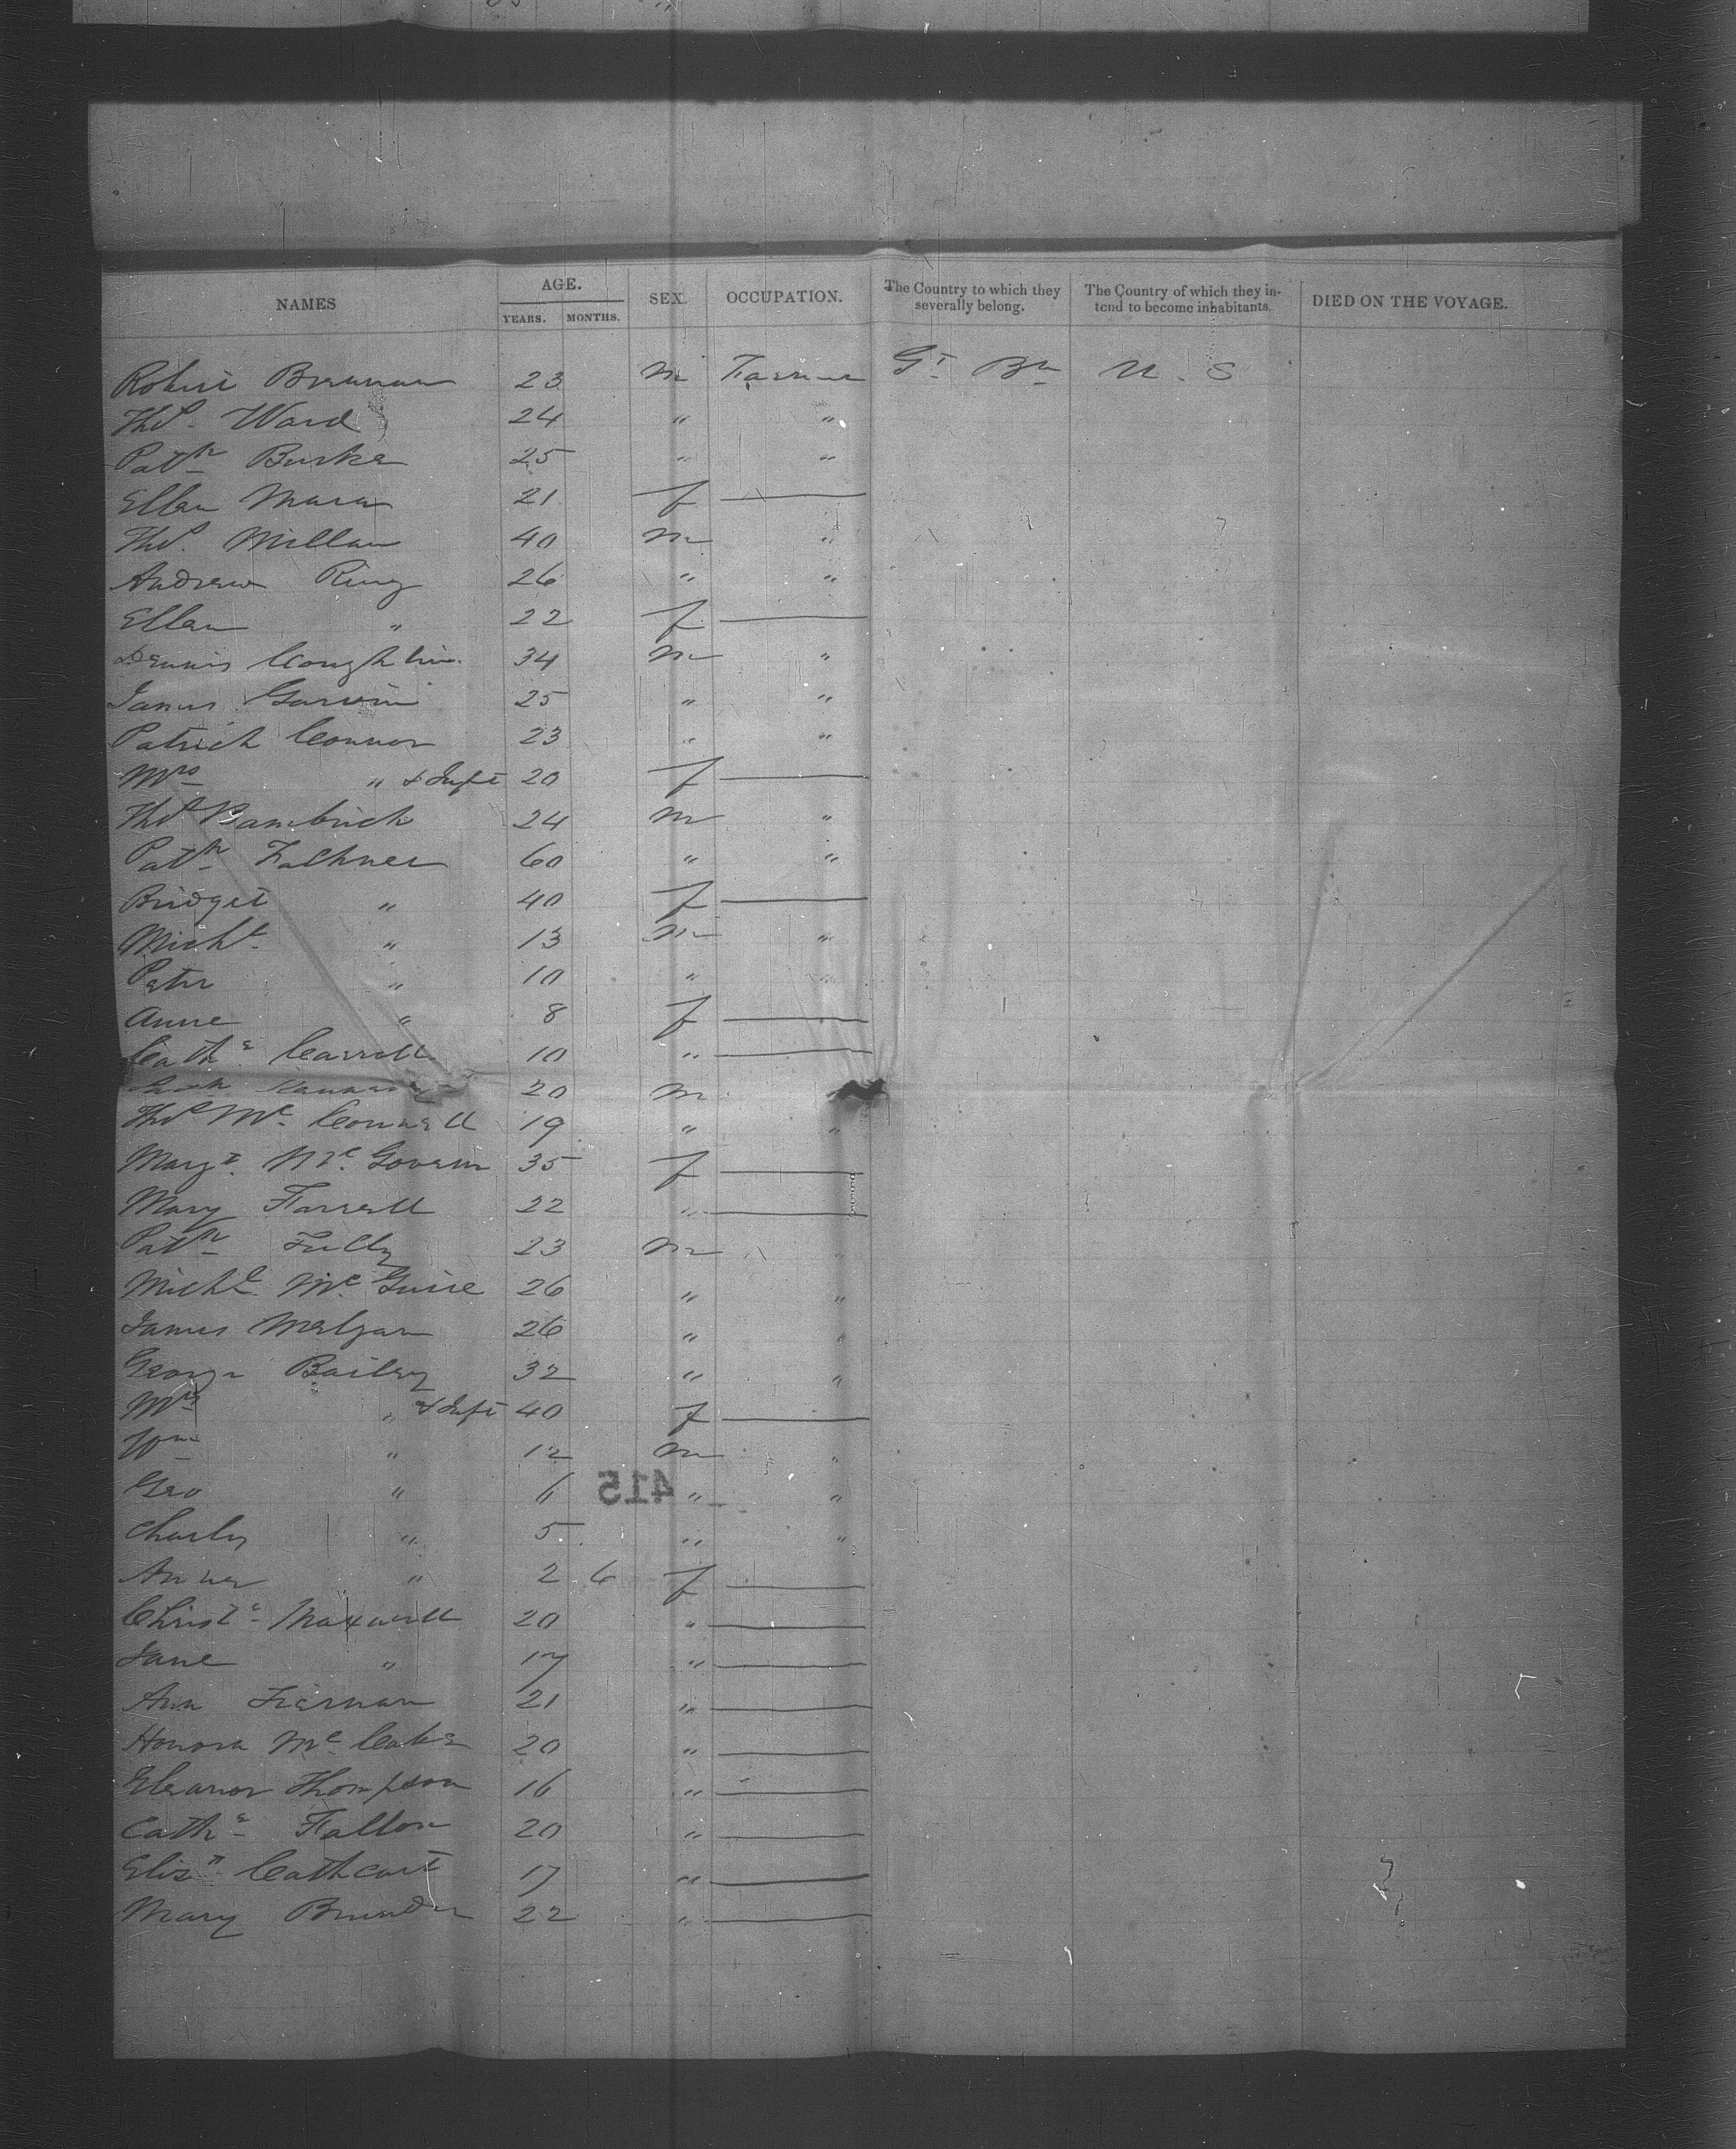 NAMES AGE. YEARS. MONTHS. SEX. OCCUPATION. The Country to which they severally belong. The Country of which they intend to become inhabitants. DIED ON THE VOYAGE.
Robert Brennan 23 m Farmer Gt Bn U. S
Thos. Ward 24 " "
Patk Burke 25 " "
Ellen Mara 21 f
Thos. Millan 40 m "
Andrew Ring 26 " "
Ellen " 22 f
Dennis Coughlin 34 m "
James Garvin 25 " "
Patrick Connor 23 " "
Mrs " & Inft 20 f
Thos Bambrick 24 m "
Patk Falkner 60 " "
Bridget " 40 f
Michl. " 13 m "
Peter " 10 " "
Anne " 8 f
Cathe Carroll 10 "
20 m
Thos Mc Connell 19 " "
Margt. Mc Govern 35 f
Mary Farrell 22 "
Patk 23 m "
Michl. Mc Guire 26 " "
James 26 " "
George Bailey 32 " "
Mrs " & Inft 40 f
Wm " 12 m "
Geo " 6 " "
415
Charles " 5 " "
" 2 6 f
Christe Maxwell 20 "
Jane " 17 "
Ann 21 "
Honora Mc Cabe 20 "
Eleanor Thompson 16 "
Cathe Fallon 20 "
Elizh Cathcart 17 "
Mary 22 "